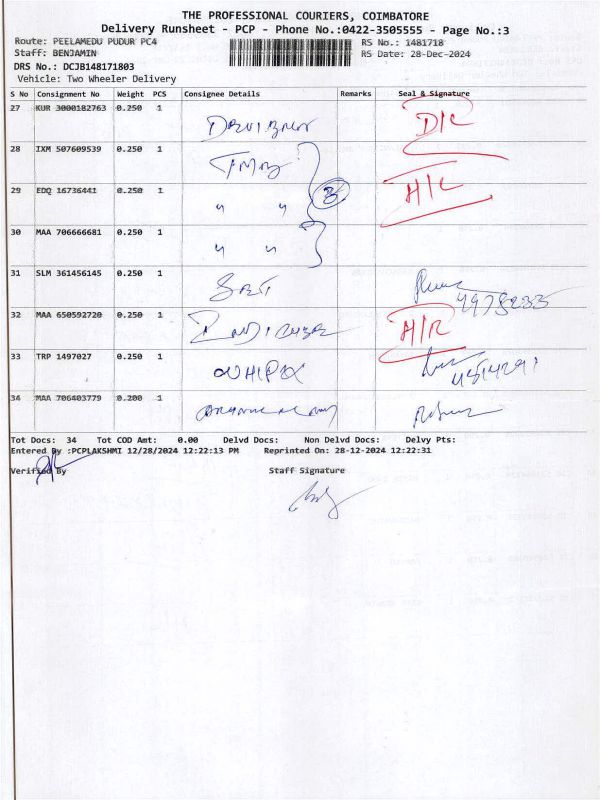 THE PROFESSIONAL COURIERS, COIMBATORE
Delivery Runsheet - PCP - Phone No.:0422-3505555 - Page No.:3
Route: PEELAMEDU PUDUR PC4 RS No.: 1481718
Staff: BENJAMIN RS Date: 28-Dec-2024
DRS No.: DCJB148171803
Vehicle: Two Wheeler Delivery
S No Consignment No Weight PCS Consignee Details Remarks Seal & Signature
27 KUR 3000182763 0.250 1 D/L
28 IXM 507609539 0.250 1 TMB
29 EDQ 16736441 0.250 1 " " 3 H/L
30 MAA 706666681 0.250 1 " "
31 SLM 361456145 0.250 1
32 MAA 650592720 0.250 1 H/R
33 TRP 1497027 0.250 1
34 MAA 706403779 0.200 1
Tot Docs: 34 Tot COD Amt: 0.00 Delvd Docs: Non Delvd Docs: Delvy Pts:
Entered By :PCPLAKSHMI 12/28/2024 12:22:13 PM Reprinted On: 28-12-2024 12:22:31
Verified By Staff Signature